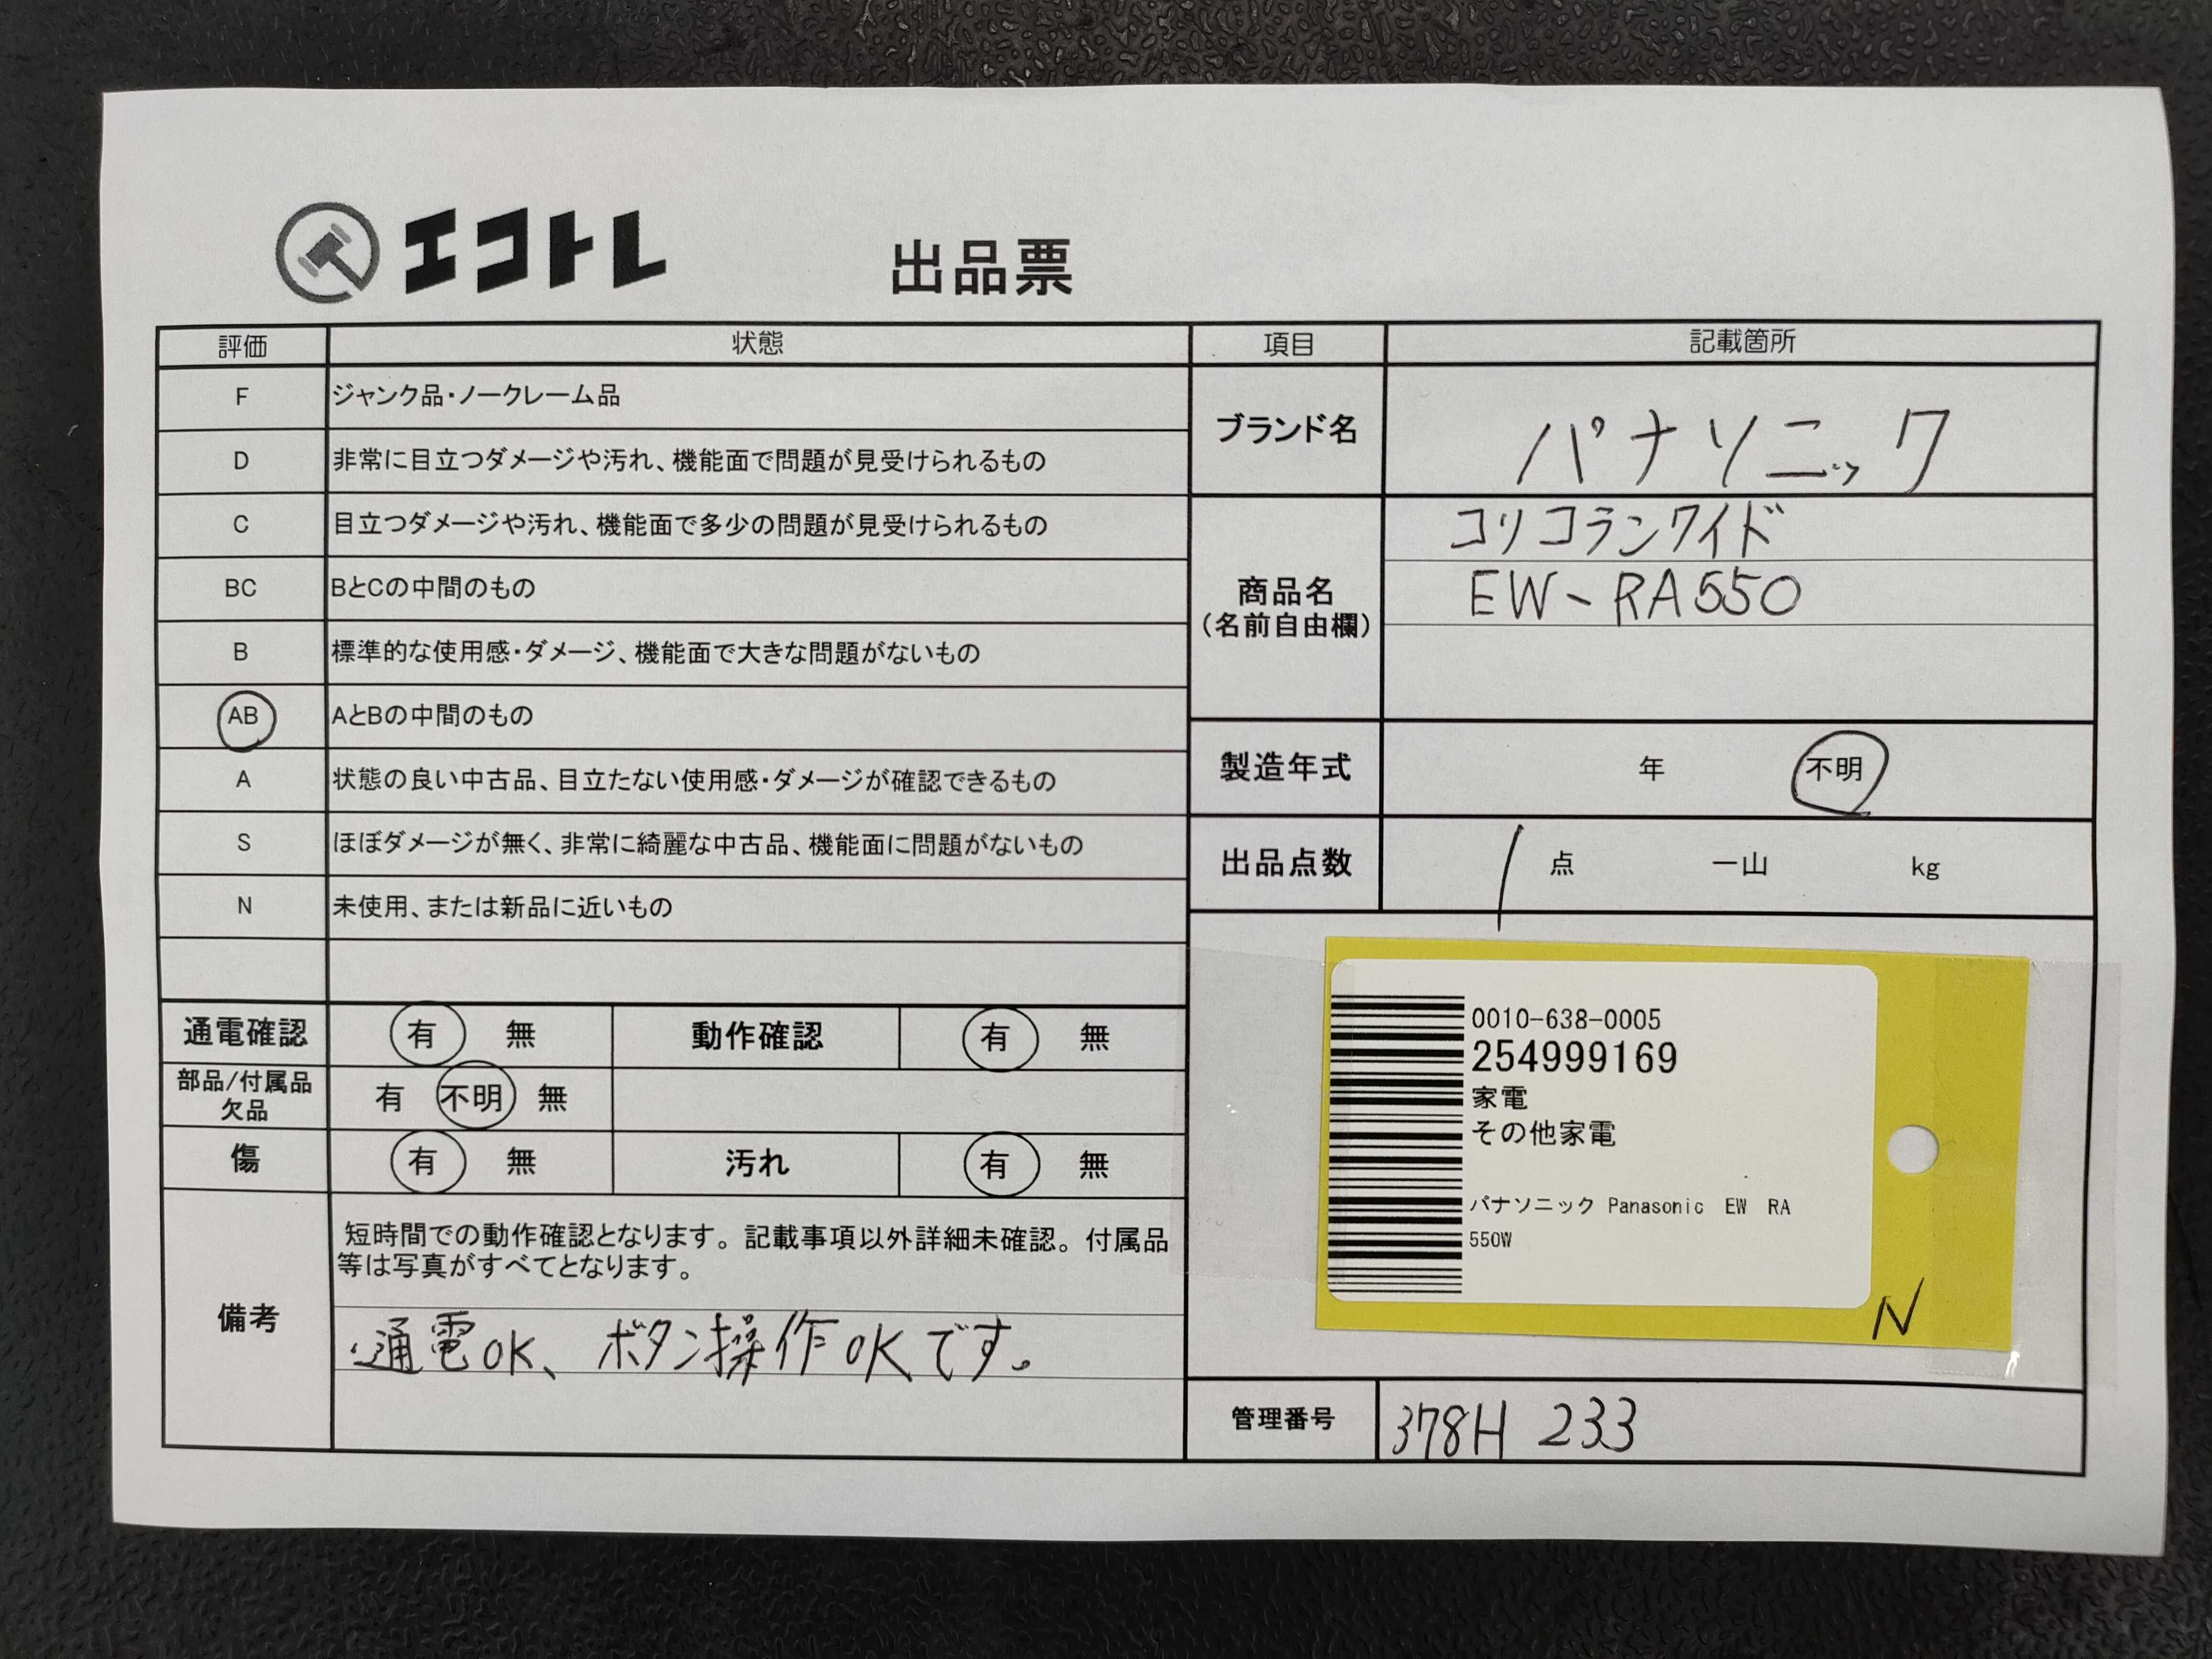 エコトレ
出品票
評価 状態
F ジャンク品・ノークレーム品
D 非常に目立つダメージや汚れ、機能面で問題が見受けられるもの
C 目立つダメージや汚れ、機能面で多少の問題が見受けられるもの
BC BとCの中間のもの
B 標準的な使用感・ダメージ、機能面で大きな問題がないもの
AB AとBの中間のもの
A 状態の良い中古品、目立たない使用感・ダメージが確認できるもの
S ほぼダメージが無く、非常に綺麗な中古品、機能面に問題がないもの
N 未使用、または新品に近いもの
通電確認 有 無 動作確認 有 無
部品/付属品
欠品
有 不明 無
傷 有 無 汚れ 有 無
備考
短時間での動作確認となります。記載事項以外詳細未確認。付属品
等は写真がすべてとなります。
・通電OK、ボタン操作OKです。
項目 記載箇所
ブランド名 パナソニック
商品名
(名前自由欄)
コリコランワイド
EW-RA550
製造年式 年 不明
出品点数 1 点 一山 kg
0010-638-0005
254999169
家電
その他家電
パナソニック Panasonic EW RA
550W
N
管理番号 378H 233